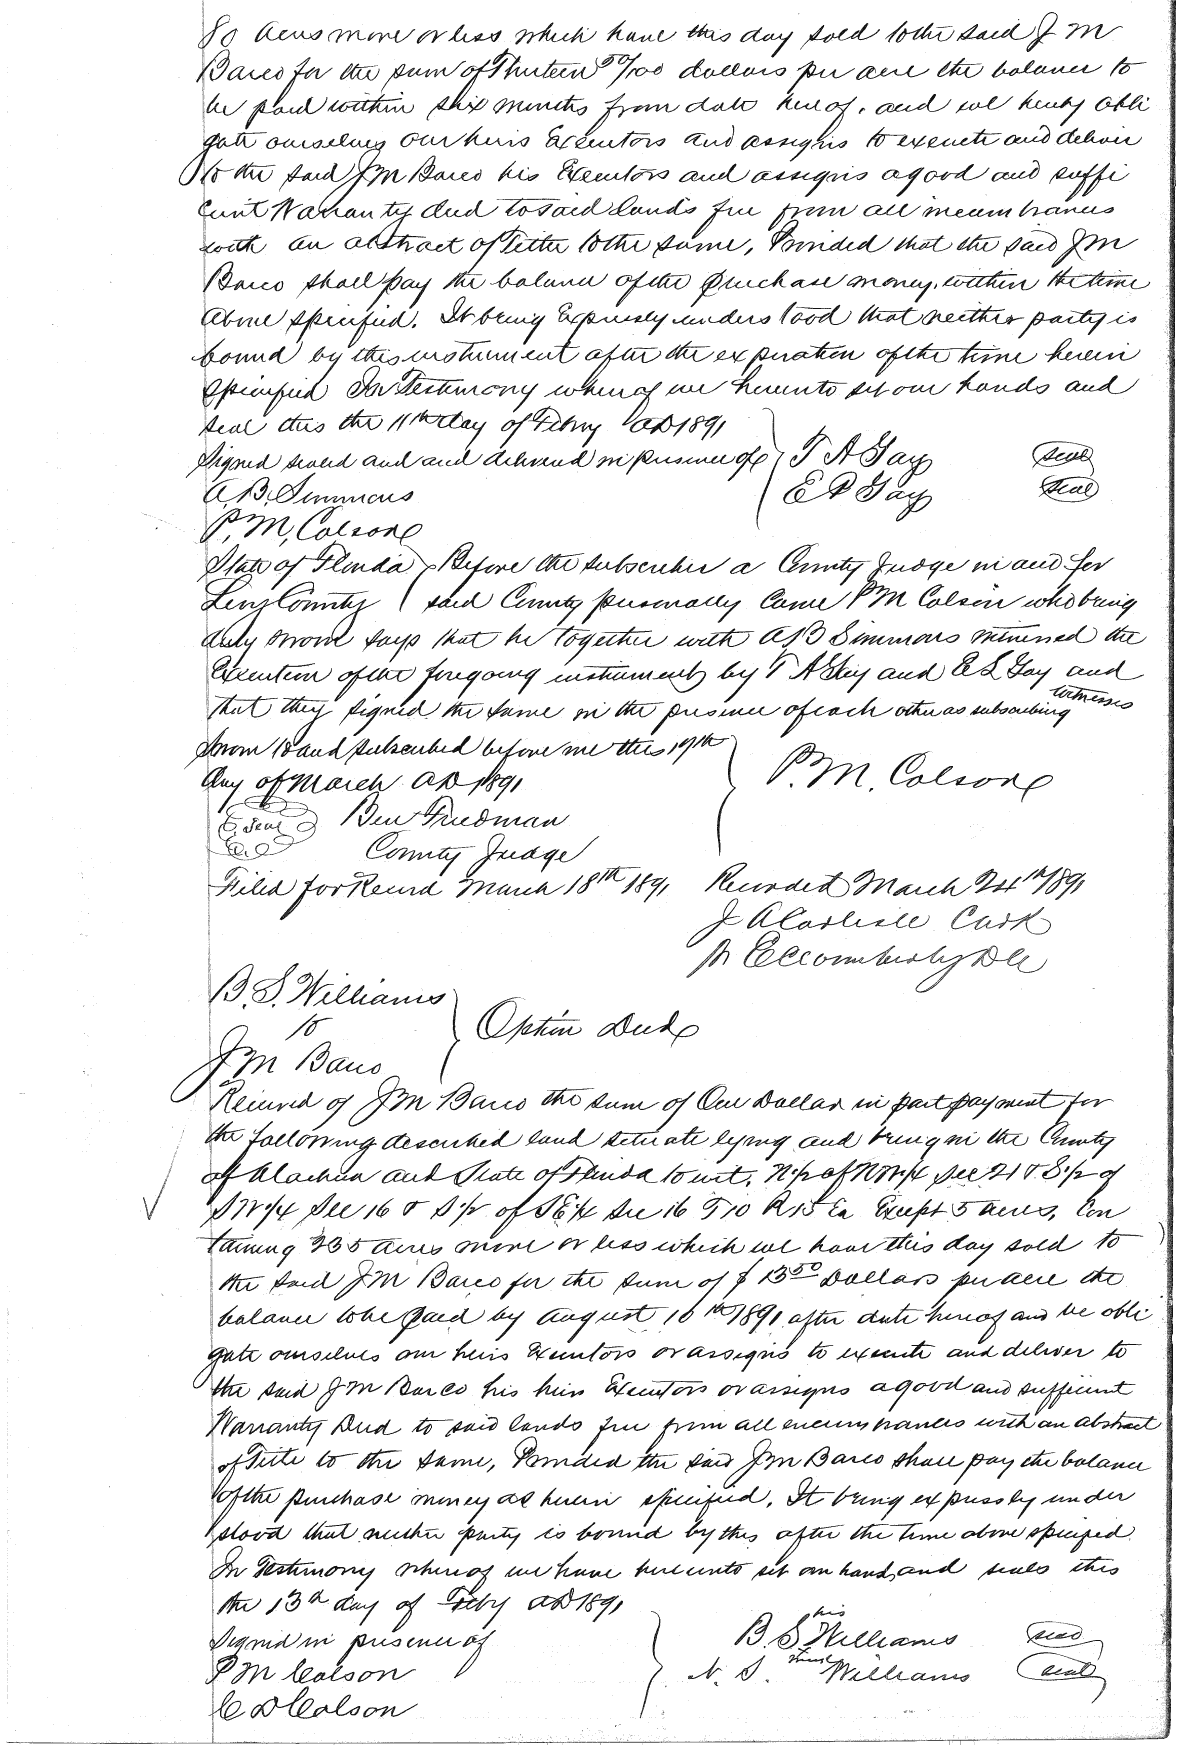 80 Acres more or less which have this day sold to the said J M
Barco for the sum of Thirteen 50/100 dollars per acre the balance to
be paid within six months from date hereof, and we hereby obli
gate ourselves our heirs Executors and assigns to execute and deliver
to the said J M Barco his Executors and assigns a good and suffi
cient Warranty deed to said lands free from all incumbrances
with an abstract of Title to the same, Provided that the said J M
Barco shall pay the balance of the purchase money, within the time
above specified. It being Expressly understood that neither party is
bound by this instrument after the expiration of the time herein
specified In Testimony whereof we hereunto set our hands and
seal this the 11th day of Febry AD 1891
Signed sealed and and delivered in presence of T A Gay seal
A. B. Simmons E P Gay seal
P. M. Colson
State of Florida Before the subscriber a County Judge in and for
Levy County said County personally came P M Colson who being
duly sworn says that he together with A B Simmons witnessed the
Execution of the foregoing instrument by T A Gay and E L Gay and
that they signed the same in the presence of each other as subscribing witnesses
Sworn to and subscribed before me this 19th
day of March AD 1891 P. M. Colson
Seal Ben Friedman
County Judge
Filed for Record March 18th 1891 Recorded March 24th 1891
J A Carlisle Clerk
B. S. Williams
to Option Deed
J M Barco
Received of J M Barco the sum of One Dollar in part payment for
the following described land situate lying and being in the County
of Alachua and State of Florida to wit. N 1/2 of NW 1/4 Sec 21 & S 1/2 of
SW 1/4 Sec 16 & S 1/2 of SE 1/4 Sec 16 T 10 R 15 Ea Except 5 acres, Con
taining 235 acres more or less which we have this day sold to
the said J M Barco for the sum of $ 13 50 Dollars per acre the
balance to be paid by August 10th 1891 after date hereof and we obli
gate ourselves our heirs Executors or assigns to execute and deliver to
the said J M Barco his heirs Executors or assigns a good and sufficient
Warranty Deed to said lands free from all encumbrances with an abstract
of Title to the same, Provided the said J M Barco shall pay the balance
of the purchase money as herein specified. It being expressly under
stood that neither party is bound by this after the time above specified
In Testimony whereof we have hereunto set our hands and seals this
the 13th day of Feby AD 1891
Signed in presence of B. S. his Williams seal
P M Colson N. S. Williams seal
C D Colson